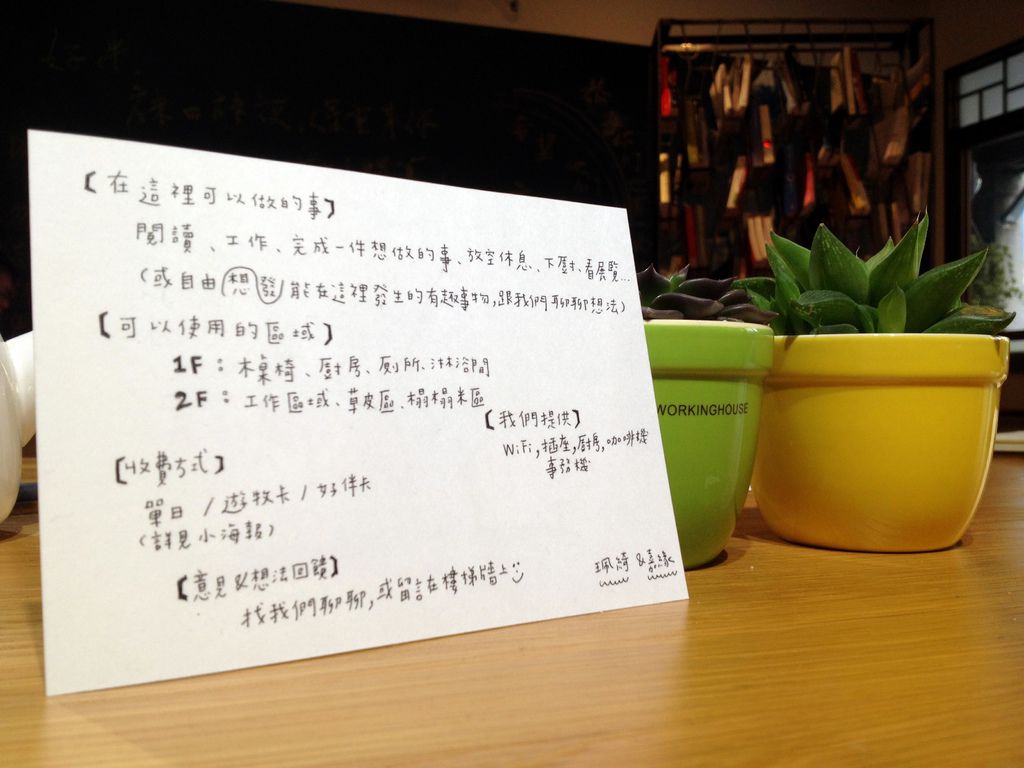 【在這裡可以做的事】
閱讀、工作、完成一件想做的事、放空休息、下廚、看展覽...
(或自由想發能在這裡發生的有趣事物,跟我們聊聊想法)
【可以使用的區域】
1F：木桌椅、廚房、廁所、淋浴間
2F：工作區域、草皮區、榻榻米區
【我們提供】
WiFi,插座,廚房,咖啡機
事務機
【收費方式】
單日 / 遊牧卡 / 好伴卡
(詳見小海報)
【意見&想法回饋】
找我們聊聊,或留言在樓梯牆上
珮綺 & 嘉緣
WORKINGHOUSE